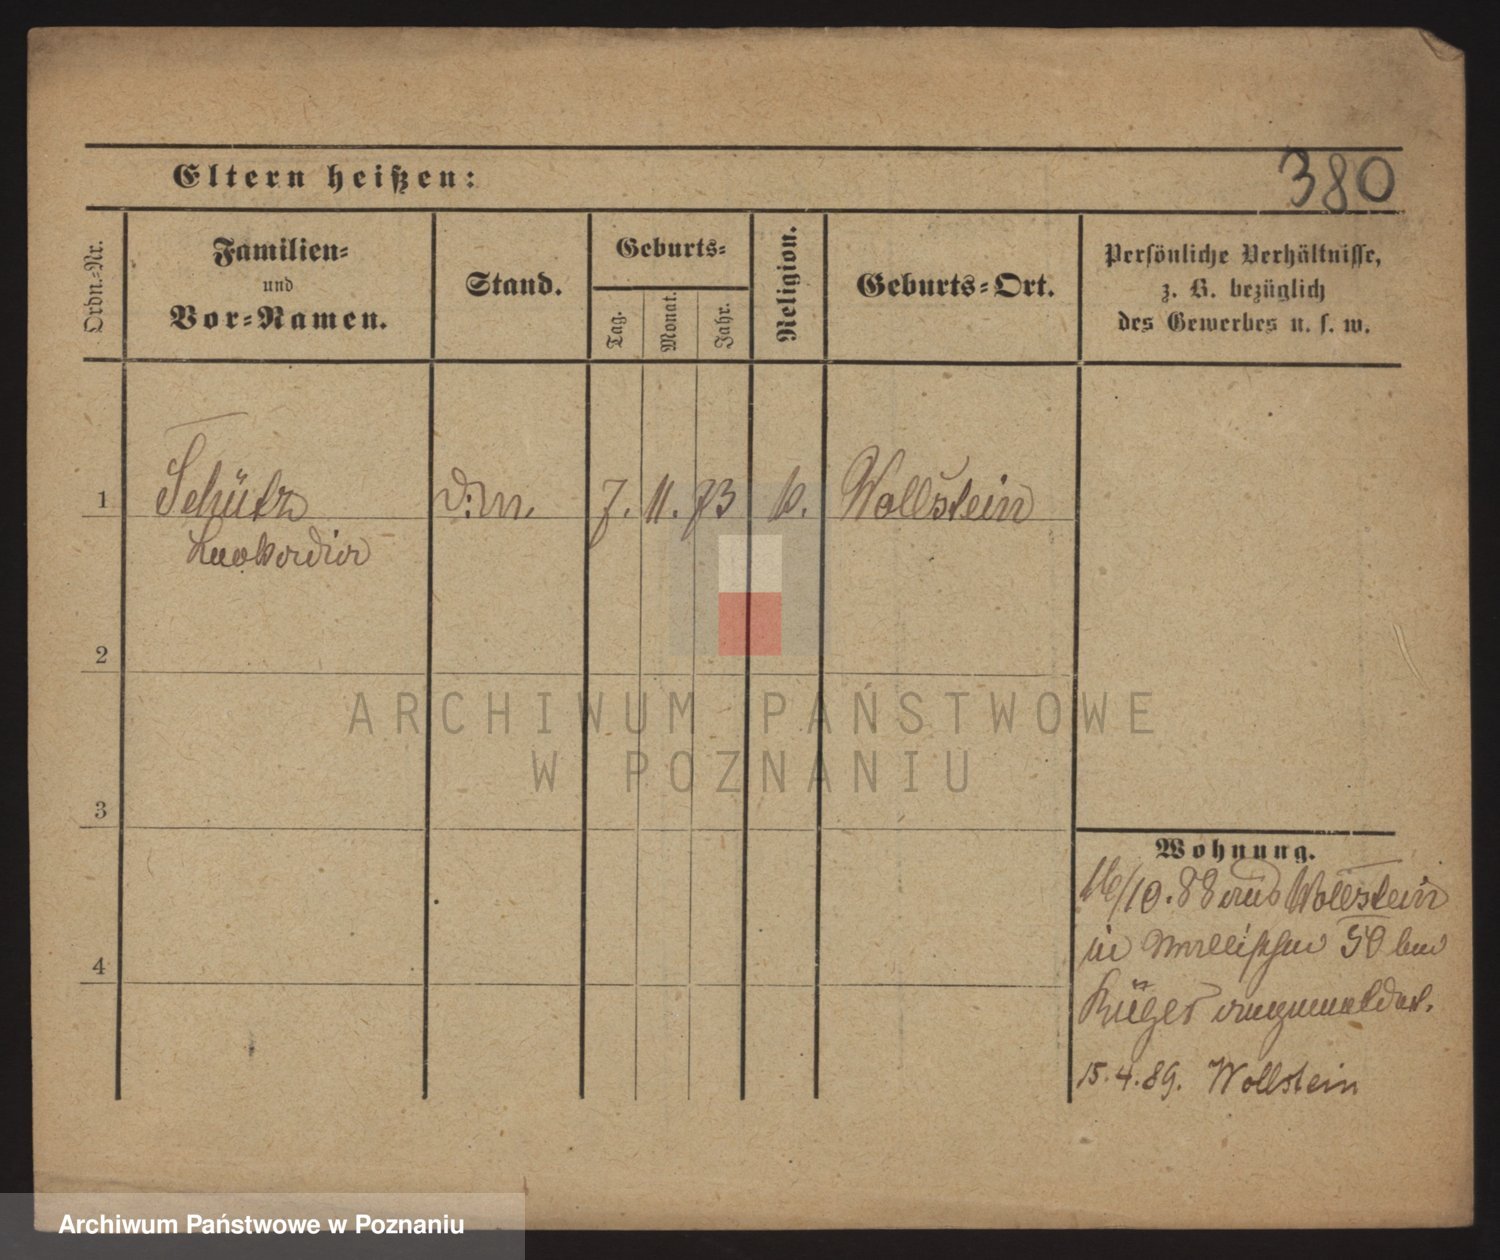 Eltern heißen:
380
Ordn.-Nr.
Familien-
und
Vor-Namen.
Stand.
Geburts-
Tag.
Monat.
Jahr.
Religion.
Geburts-Ort.
Persönliche Verhältnisse,
z. B. bezüglich
des Gewerbes u. s. w.
1
Schütz
d. m.
7. 11. 73
k.
Wollstein
Leokardia
2
ARCHIWUM PAŃSTWOWE
W POZNANIU
3
Wohnung.
16/10. 88 aus Wollstein
in 50 bei
angemeldet.
4
15. 4. 89. Wollstein
Archiwum Państwowe w Poznaniu